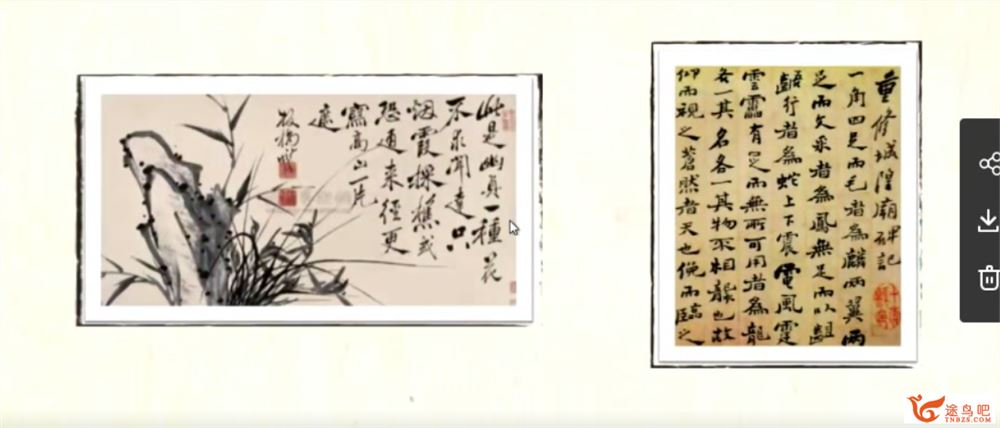 此是幽貞一種花
不求聞達只
烟霞採樵或
恐通來徑更
寫高山一片
遮
板橋
重修城隍廟碑記
一角四足而毛者為麟兩翼兩
足而文采者為鳳無足而以齟
齬行者為蛇上下震電風霆
雲靁有足而無所可用者為龍
各一其名各一其物不相襲也故
仰而視之蒼然者天也俛而臨之
途鸟吧
TNBZS.COM